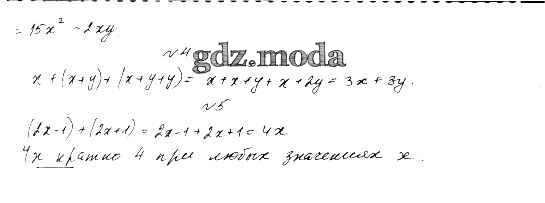 = 15x² - 2xy
№4
gdz.moda
x + (x+y) + (x+y+y) = x+x+y+x+2y = 3x + 3y.
№5
(2x-1) + (2x+1) = 2x-1+2x+1 = 4x
4x кратно 4 при любых значениях x.